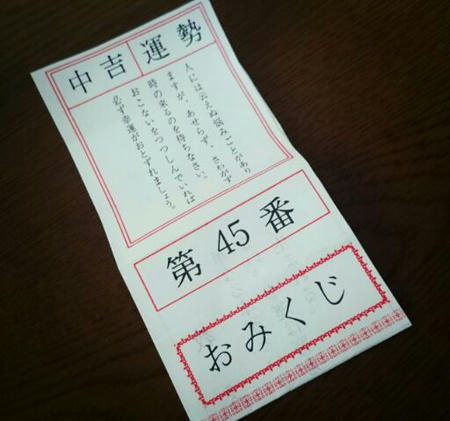 運勢
中吉
人には云えぬ悩みごとがあり
ますが、あせらず、さわがず
時の来るのを待ちなさい。
おこないをつつしんでいれば
必ず幸運がおとずれましょう。
第45番
おみくじ